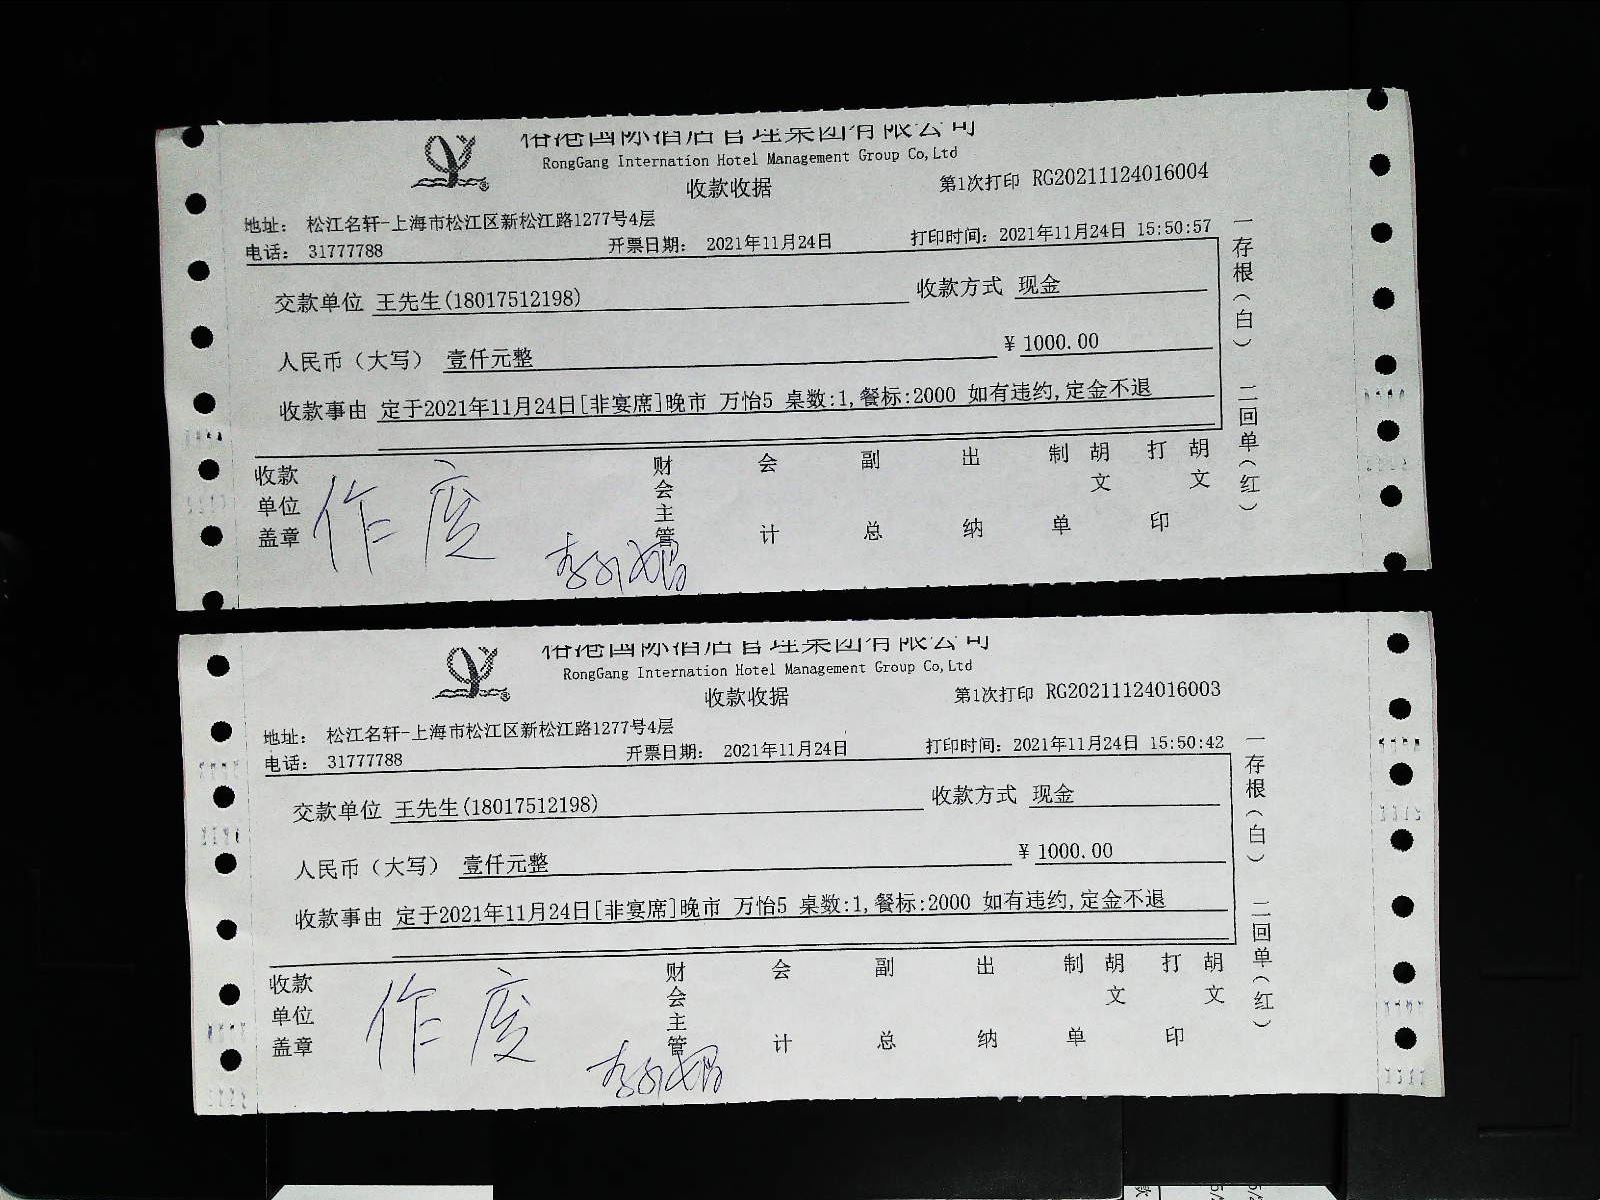 港国际酒店管理集团有限公司
RongGang Internation Hotel Management Group Co,Ltd
收款收据
第1次打印 RG20211124016004
地址： 松江名轩-上海市松江区新松江路1277号4层
电话： 31777788 开票日期： 2021年11月24日 打印时间：2021年11月24日 15:50:57
交款单位 王先生(18017512198) 收款方式 现金
人民币（大写） 壹仟元整 ¥ 1000.00
收款事由 定于2021年11月24日[非宴席]晚市 万怡5 桌数:1,餐标:2000 如有违约,定金不退
收款单位盖章 财会主管 会计 副总 出纳 制单 胡文 打印 胡文
作废
一存根（白） 二回单（红）
港国际酒店管理集团有限公司
RongGang Internation Hotel Management Group Co,Ltd
收款收据
第1次打印 RG20211124016003
地址： 松江名轩-上海市松江区新松江路1277号4层
电话： 31777788 开票日期： 2021年11月24日 打印时间：2021年11月24日 15:50:42
交款单位 王先生(18017512198) 收款方式 现金
人民币（大写） 壹仟元整 ¥ 1000.00
收款事由 定于2021年11月24日[非宴席]晚市 万怡5 桌数:1,餐标:2000 如有违约,定金不退
收款单位盖章 财会主管 会计 副总 出纳 制单 胡文 打印 胡文
作废
一存根（白） 二回单（红）